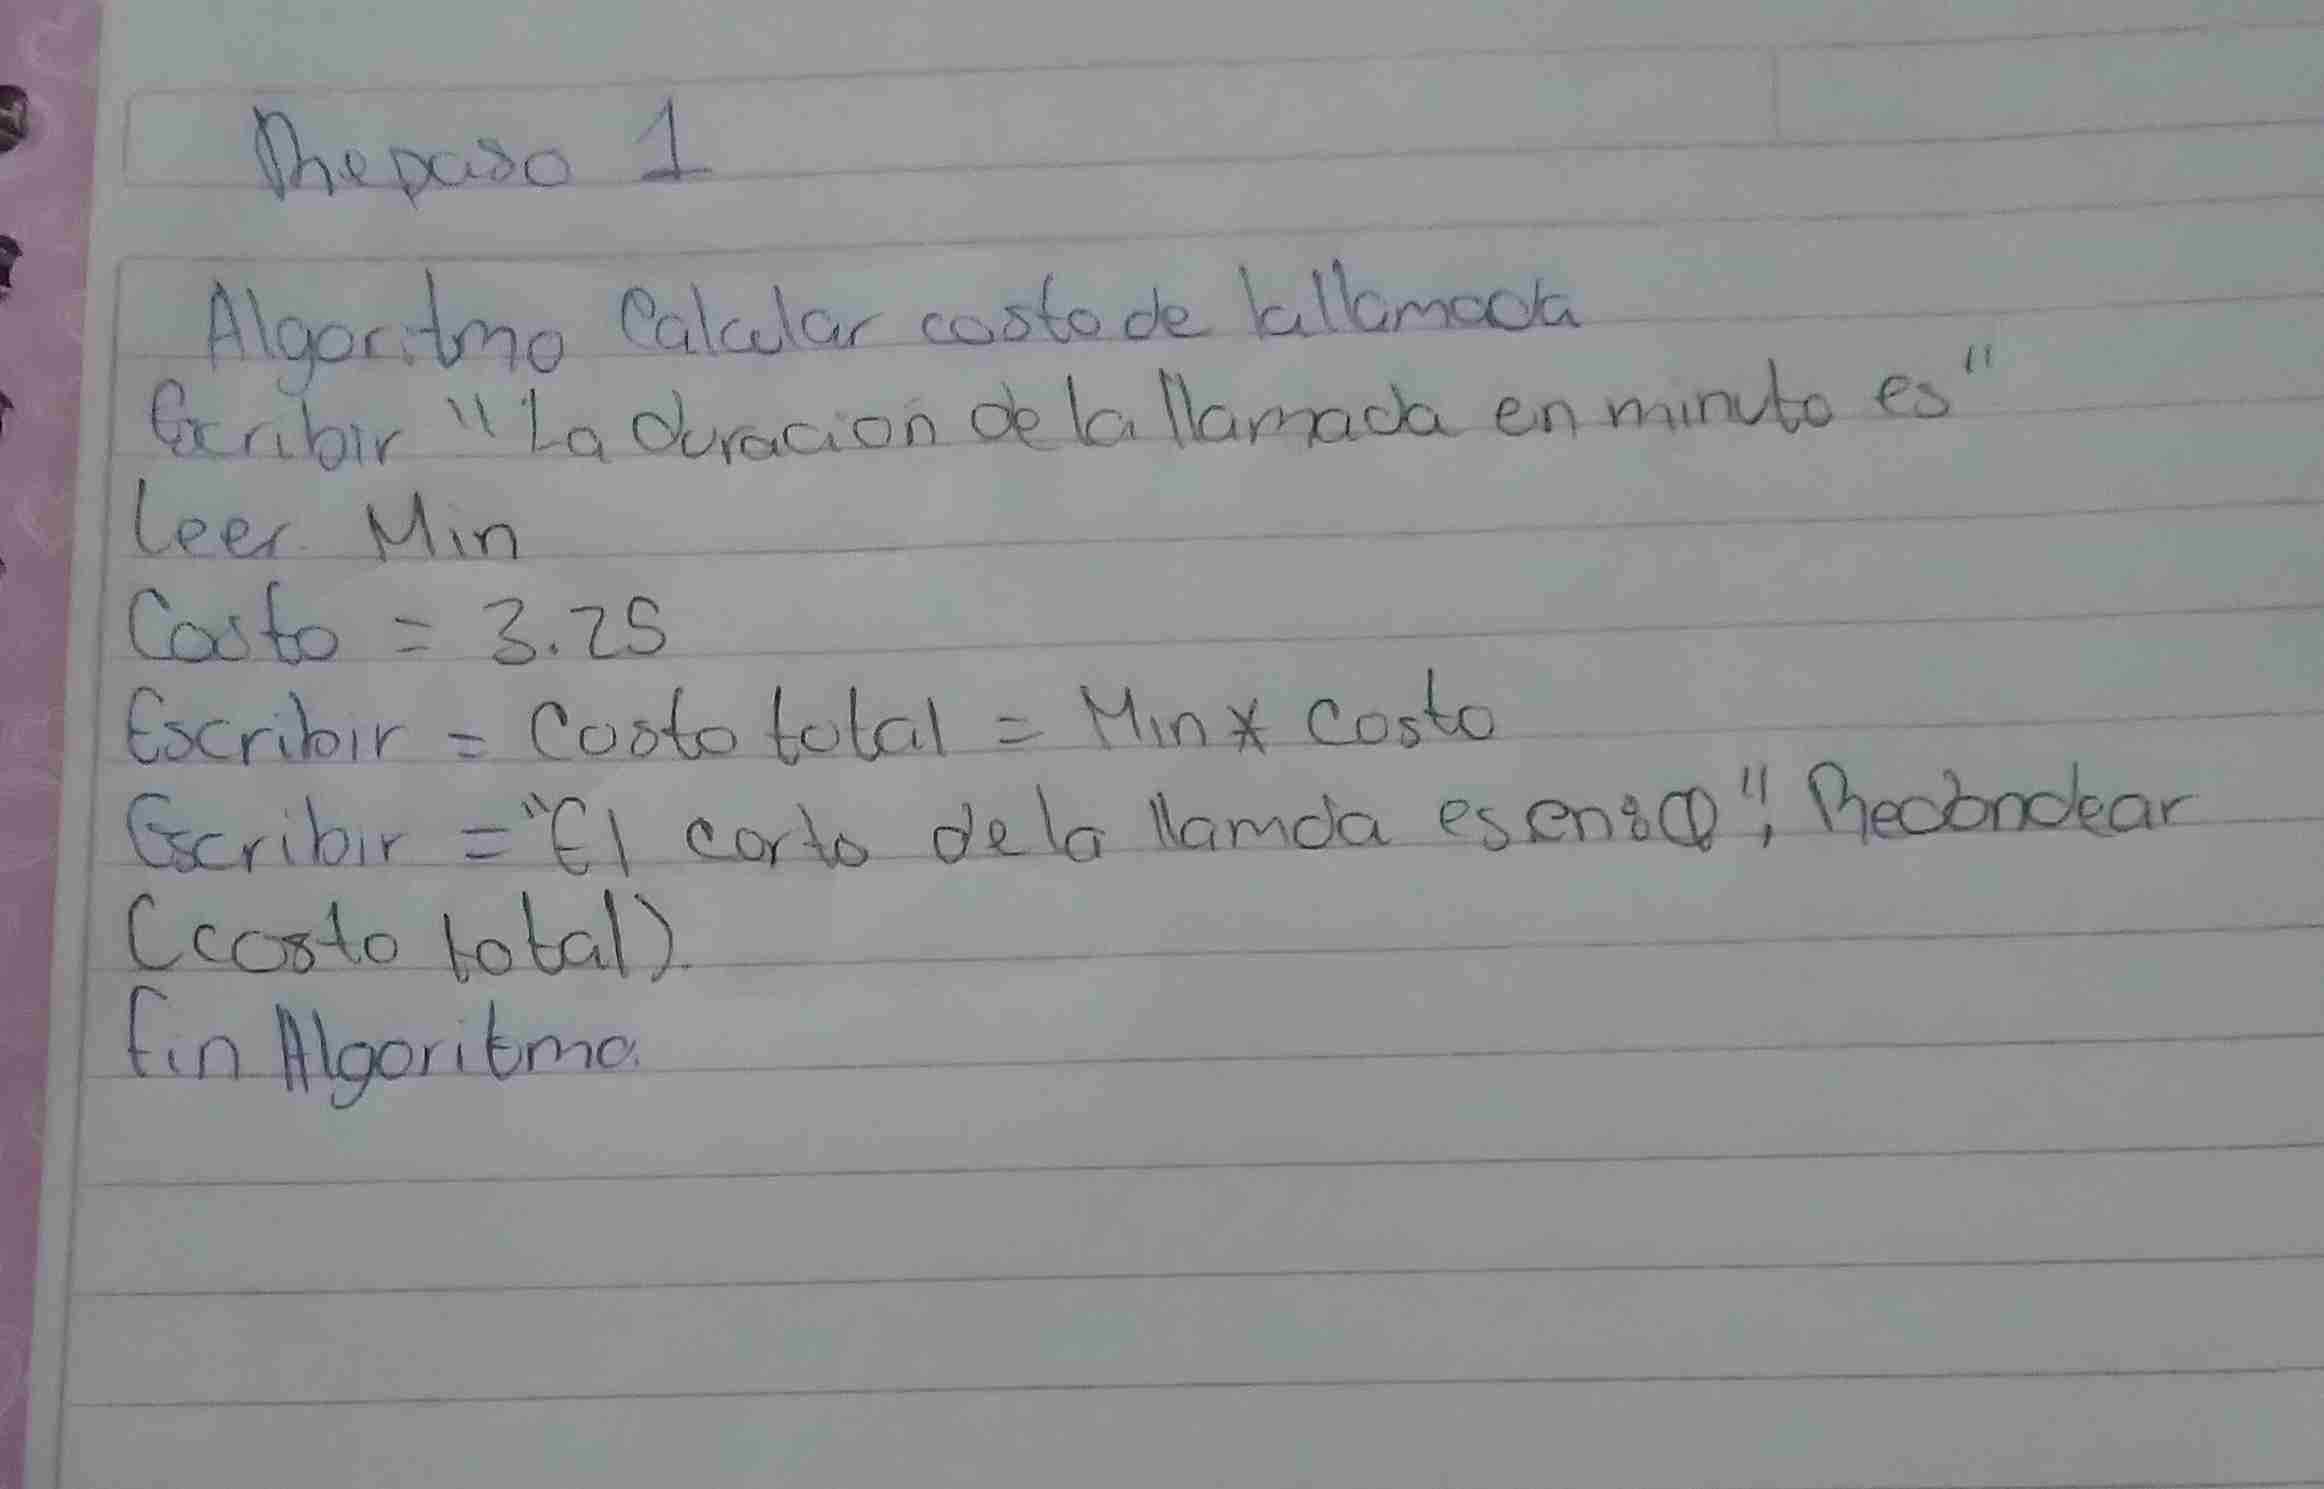 Repaso 1
Algoritmo Calcular costo de la llamada
Escribir "La duracion de la llamada en minuto es"
Leer Min
Costo = 3.25
Escribir = Costo total = Min * Costo
Escribir = "El corto de la llamda es en:₡"; Redondear
(costo total).
Fin Algoritmo.